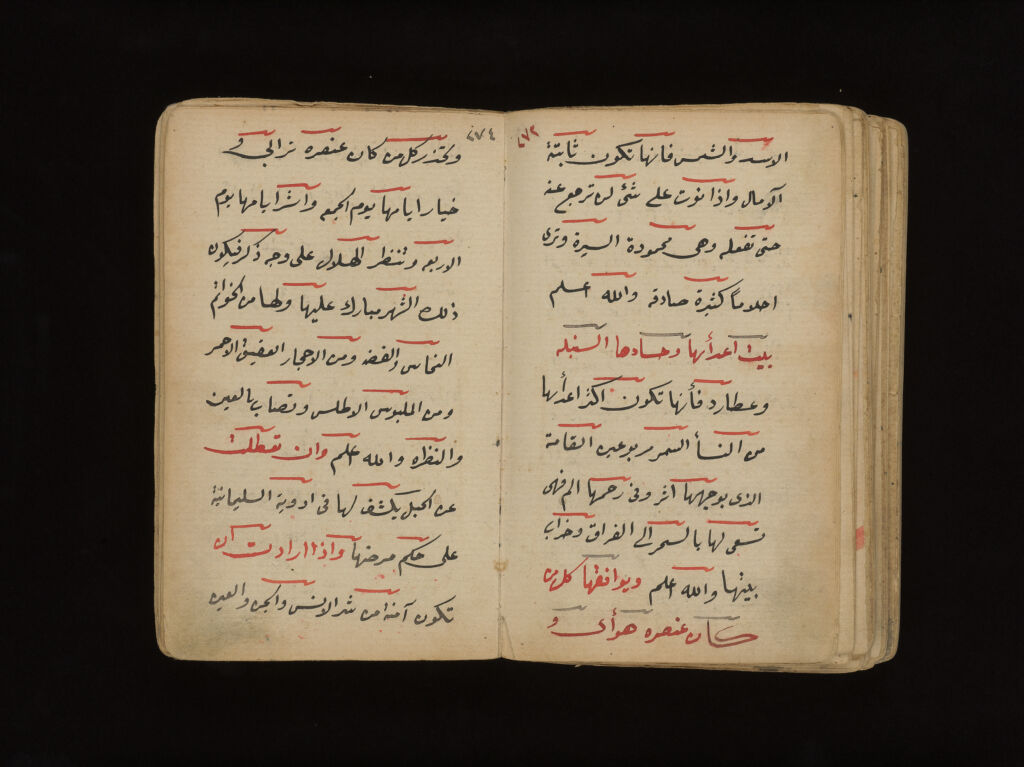 ٤٧٣
الاسد والشمس فانها تكون ثابتة
آلومال واذا نوت على شئ لم ترجع عنه
حتى تفعله وهى محمودة السيرة وترى
احلاماً كثيرة صادقه والله اعلم
بيت اعدأئها وحسادها السنبله
وعطارد فأنها تكون اكثر اعدأئها
من النسأ السمر مربوعين القامة
الذى بوجهها اثر وفى رحمها الم فهى
تسعى لها بالسحر الى الفراق وخراب
بيتها والله اعلم ويوافقها كل من
كان عنصره هوأى و
٤٧٤
وتحذر كل من كان عنصره ترابي و
خيار ايامها يوم الجمعه واشر ايامها يوم
الاربعه وتنظر الهلال على وجه ذكر فيكون
ذلك الشهر مبارك عليها ولها من الخواتم
النحاس والفضه ومن الاحجار العقيق الاحمر
ومن الملبوس الاطلس وتصاب بالعين
والنظره والله اعلم وان تعطلت
عن الحبل يكشف لها فى ادوية السليمانية
على حكم مرضها واذا ارادت ان
تكون آمنه من شر الانس والجن والعين